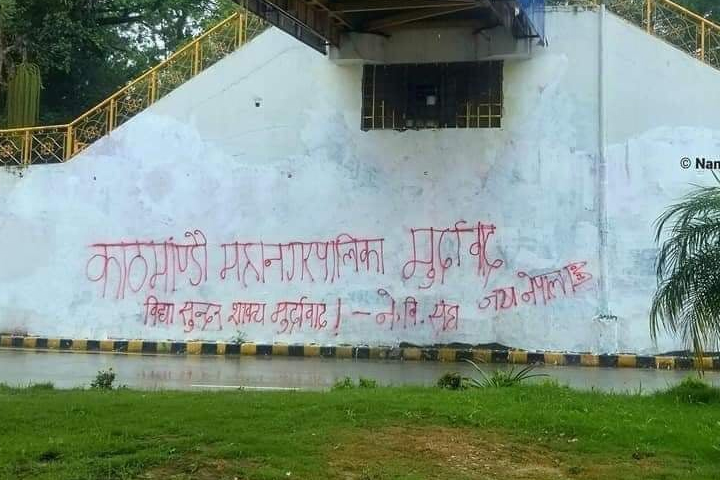 काठमाण्डौ महानगरपालिका मुर्दावाद
विद्या सुन्दर शाक्य मुर्दावाद । - ने. वि. संघ
जय नेपाल
© Nam